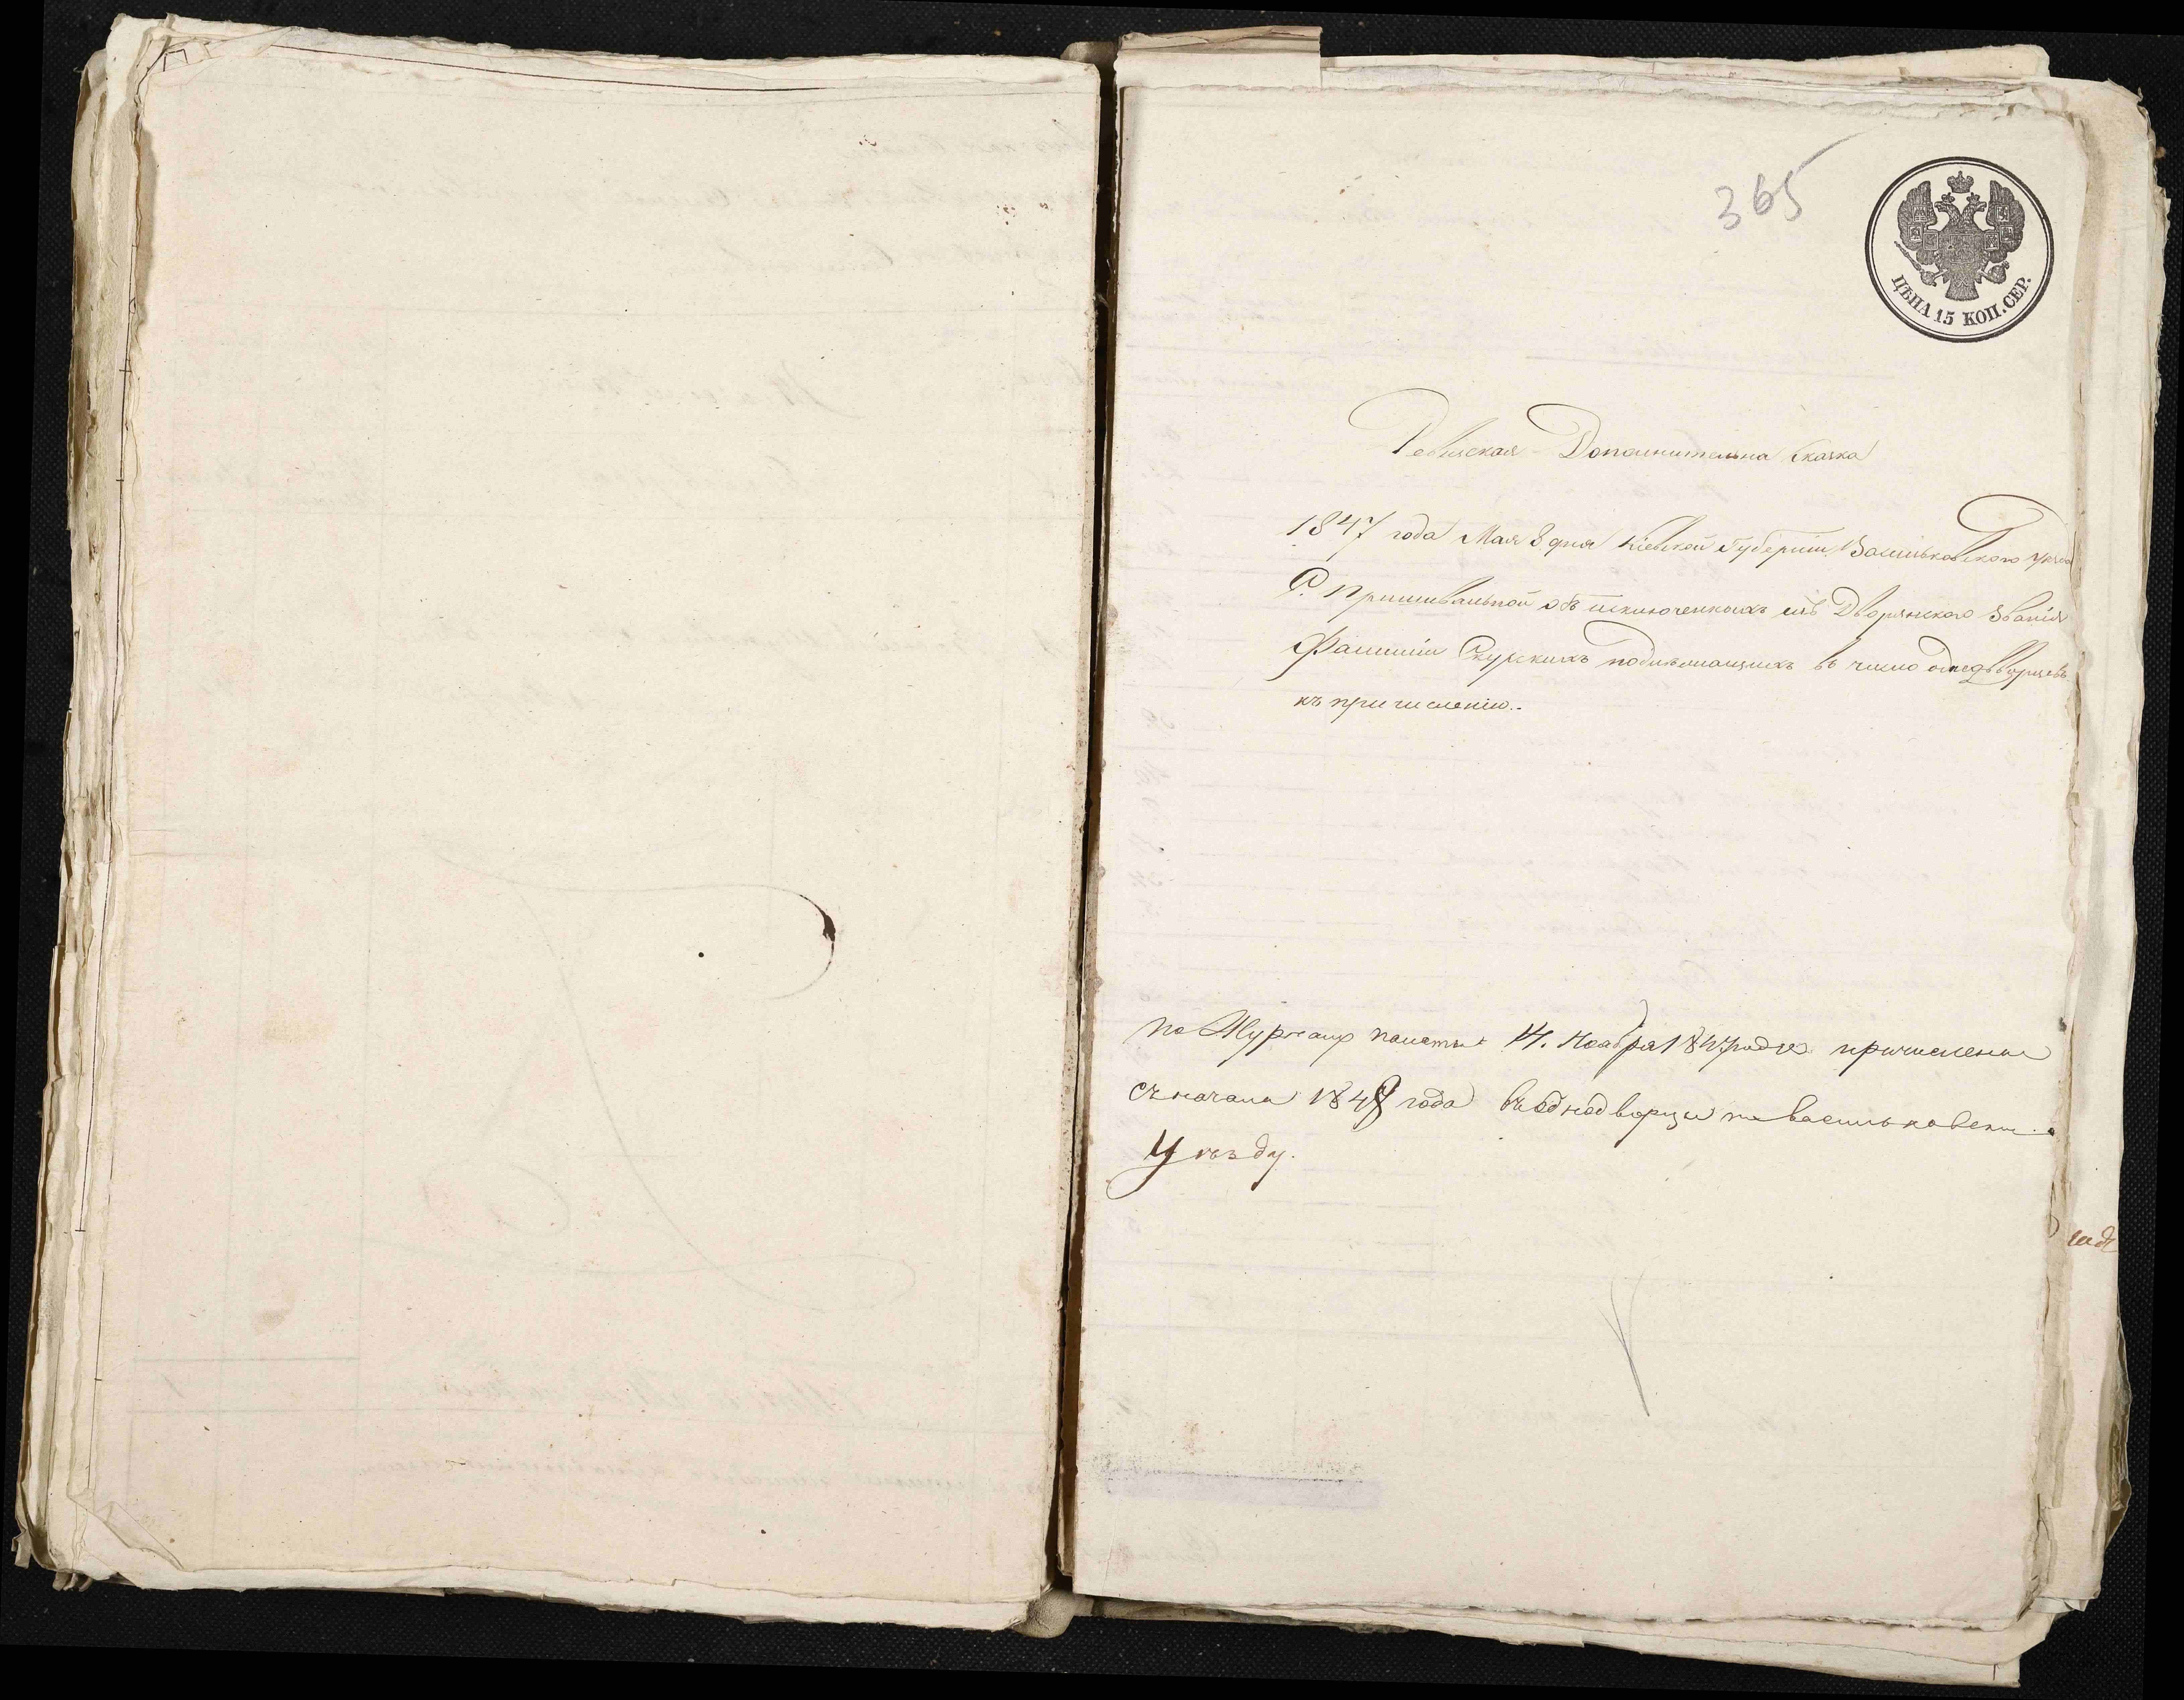 365
ЦѢНА 15 КОП. СЕР.
Ревизская Дополнительна Сказка
1847 года Мая 8 дня Кіевской Губерніи Васильковского Уезда
С. Пришивальной объ исключенныхъ изъ Дворянского Званія
Фамиліи Скурскихъ подлежащихъ въ число однодворцевъ
къ причисленію..
по Журналу палаты 14. Ноября 1847 года причислены
съ начала 1848 года въ однодворцы по Васильковском.
Уѣзду.